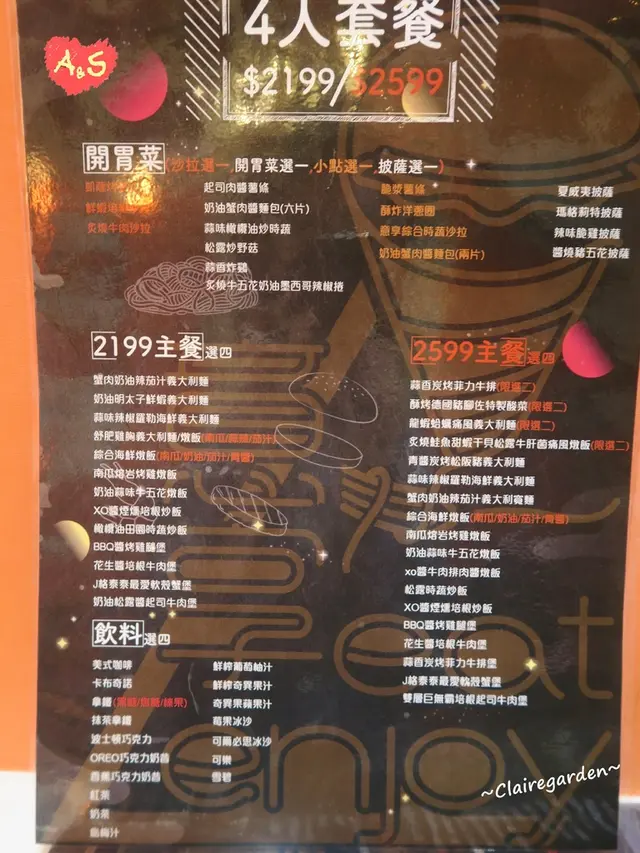 4人套餐
A&S
$2199/$2599
開胃菜(沙拉選一,開胃菜選一,小點選一,披薩選一)
炙燒牛肉沙拉
起司肉醬薯條
奶油蟹肉醬麵包(六片)
蒜味橄欖油炒時蔬
松露炒野菇
蒜香炸雞
炙燒牛五花奶油墨西哥辣椒捲
脆漿薯條
酥炸洋蔥圈
意享綜合時蔬沙拉
奶油蟹肉醬麵包(兩片)
夏威夷披薩
瑪格莉特披薩
辣味脆雞披薩
醬燒豬五花披薩
2199主餐選四
蟹肉奶油辣茄汁義大利麵
奶油明太子鮮蝦義大利麵
蒜味辣椒羅勒海鮮義大利麵
舒肥雞胸義大利麵/燉飯
綜合海鮮燉飯(南瓜/奶油/茄汁/青醬)
南瓜熔岩烤雞燉飯
奶油蒜味牛五花燉飯
XO醬煙燻培根炒飯
橄欖油田園時蔬炒飯
BBQ醬烤雞腿堡
花生醬培根牛肉堡
J格泰泰最愛軟殼蟹堡
奶油松露醬起司牛肉堡
2599主餐選四
蒜香炭烤菲力牛排(限選二)
酥烤德國豬腳佐特製酸菜(限選二)
龍蝦蛤蠣痛風義大利麵(限選二)
炙燒鮭魚甜蝦干貝松露牛肝菌痛風燉飯(限選二)
青醬炭烤松阪豬義大利麵
蒜味辣椒羅勒海鮮義大利麵
蟹肉奶油辣茄汁義大利寬麵
綜合海鮮燉飯(南瓜/奶油/茄汁/青醬)
南瓜熔岩烤雞燉飯
奶油蒜味牛五花燉飯
xo醬牛肉排肉醬燉飯
松露時蔬炒飯
XO醬煙燻培根炒飯
BBQ醬烤雞腿堡
花生醬培根牛肉堡
蒜香炭烤菲力牛排堡
J格泰泰最愛軟殼蟹堡
雙層巨無霸培根起司牛肉堡
飲料選四
美式咖啡
卡布奇諾
拿鐵(黑糖/焦糖/榛果)
抹茶拿鐵
波士頓巧克力
OREO巧克力奶昔
香蕉巧克力奶昔
紅茶
奶茶
烏梅汁
鮮榨葡萄柚汁
鮮榨奇異果汁
奇異果蘋果汁
莓果冰沙
可爾必思冰沙
可樂
雪碧
eat
enjoy
~Clairegarden~